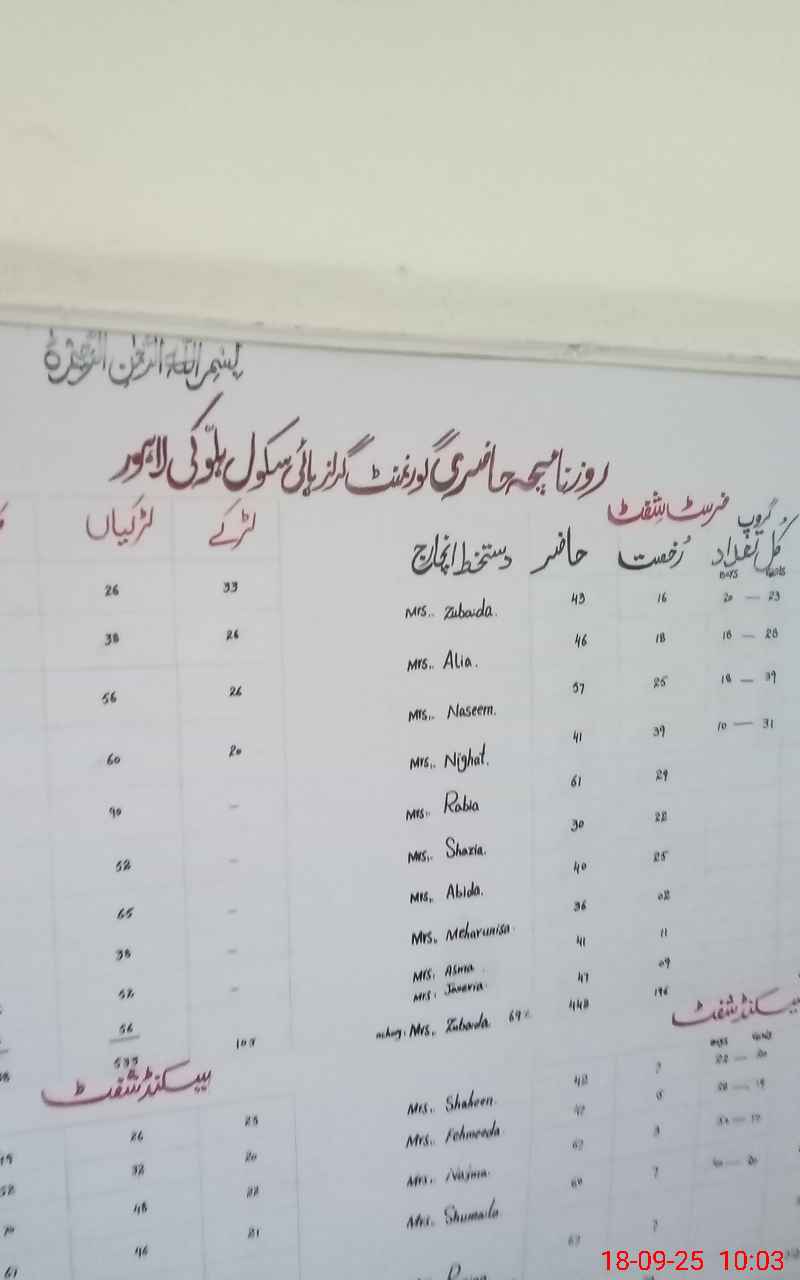 بسم اللہ الرحمٰن الرحیم
روزنامچہ حاضری گورنمنٹ گرلز ہائی سکول ہلّوکی لاہور
فرسٹ شفٹ
گروپ کُل تعداد رُخصت حاضر دستخط انچارج لڑکے لڑکیاں
20 — 23 16 43 Mrs.. Zubaida. 33 26
18 — 28 18 46 Mrs.. Alia. 26 38
18 — 39 25 57 Mrs.. Naseem. 26 56
10 — 31 39 41 Mrs.. Nighat. 20 60
29 61 Mrs.. Rabia - 90
22 30 Mrs.. Shazia. - 52
25 40 Mrs.. Abida. - 65
02 36 Mrs.. Meharunisa. - 38
11 41 Mrs. Asma - 52
09 47 Mrs. Javeria 56
196 442 Mrs.. Zubaida. 69% 105 533
سیکنڈ شفٹ
سیکنڈ شفٹ
42 Mrs.. Shaheen. 25 26
Mrs.. Fehmeeda 20 32
Mrs.. Najma 22 48
Mrs. Shumaila 21 46
18-09-25 10:03